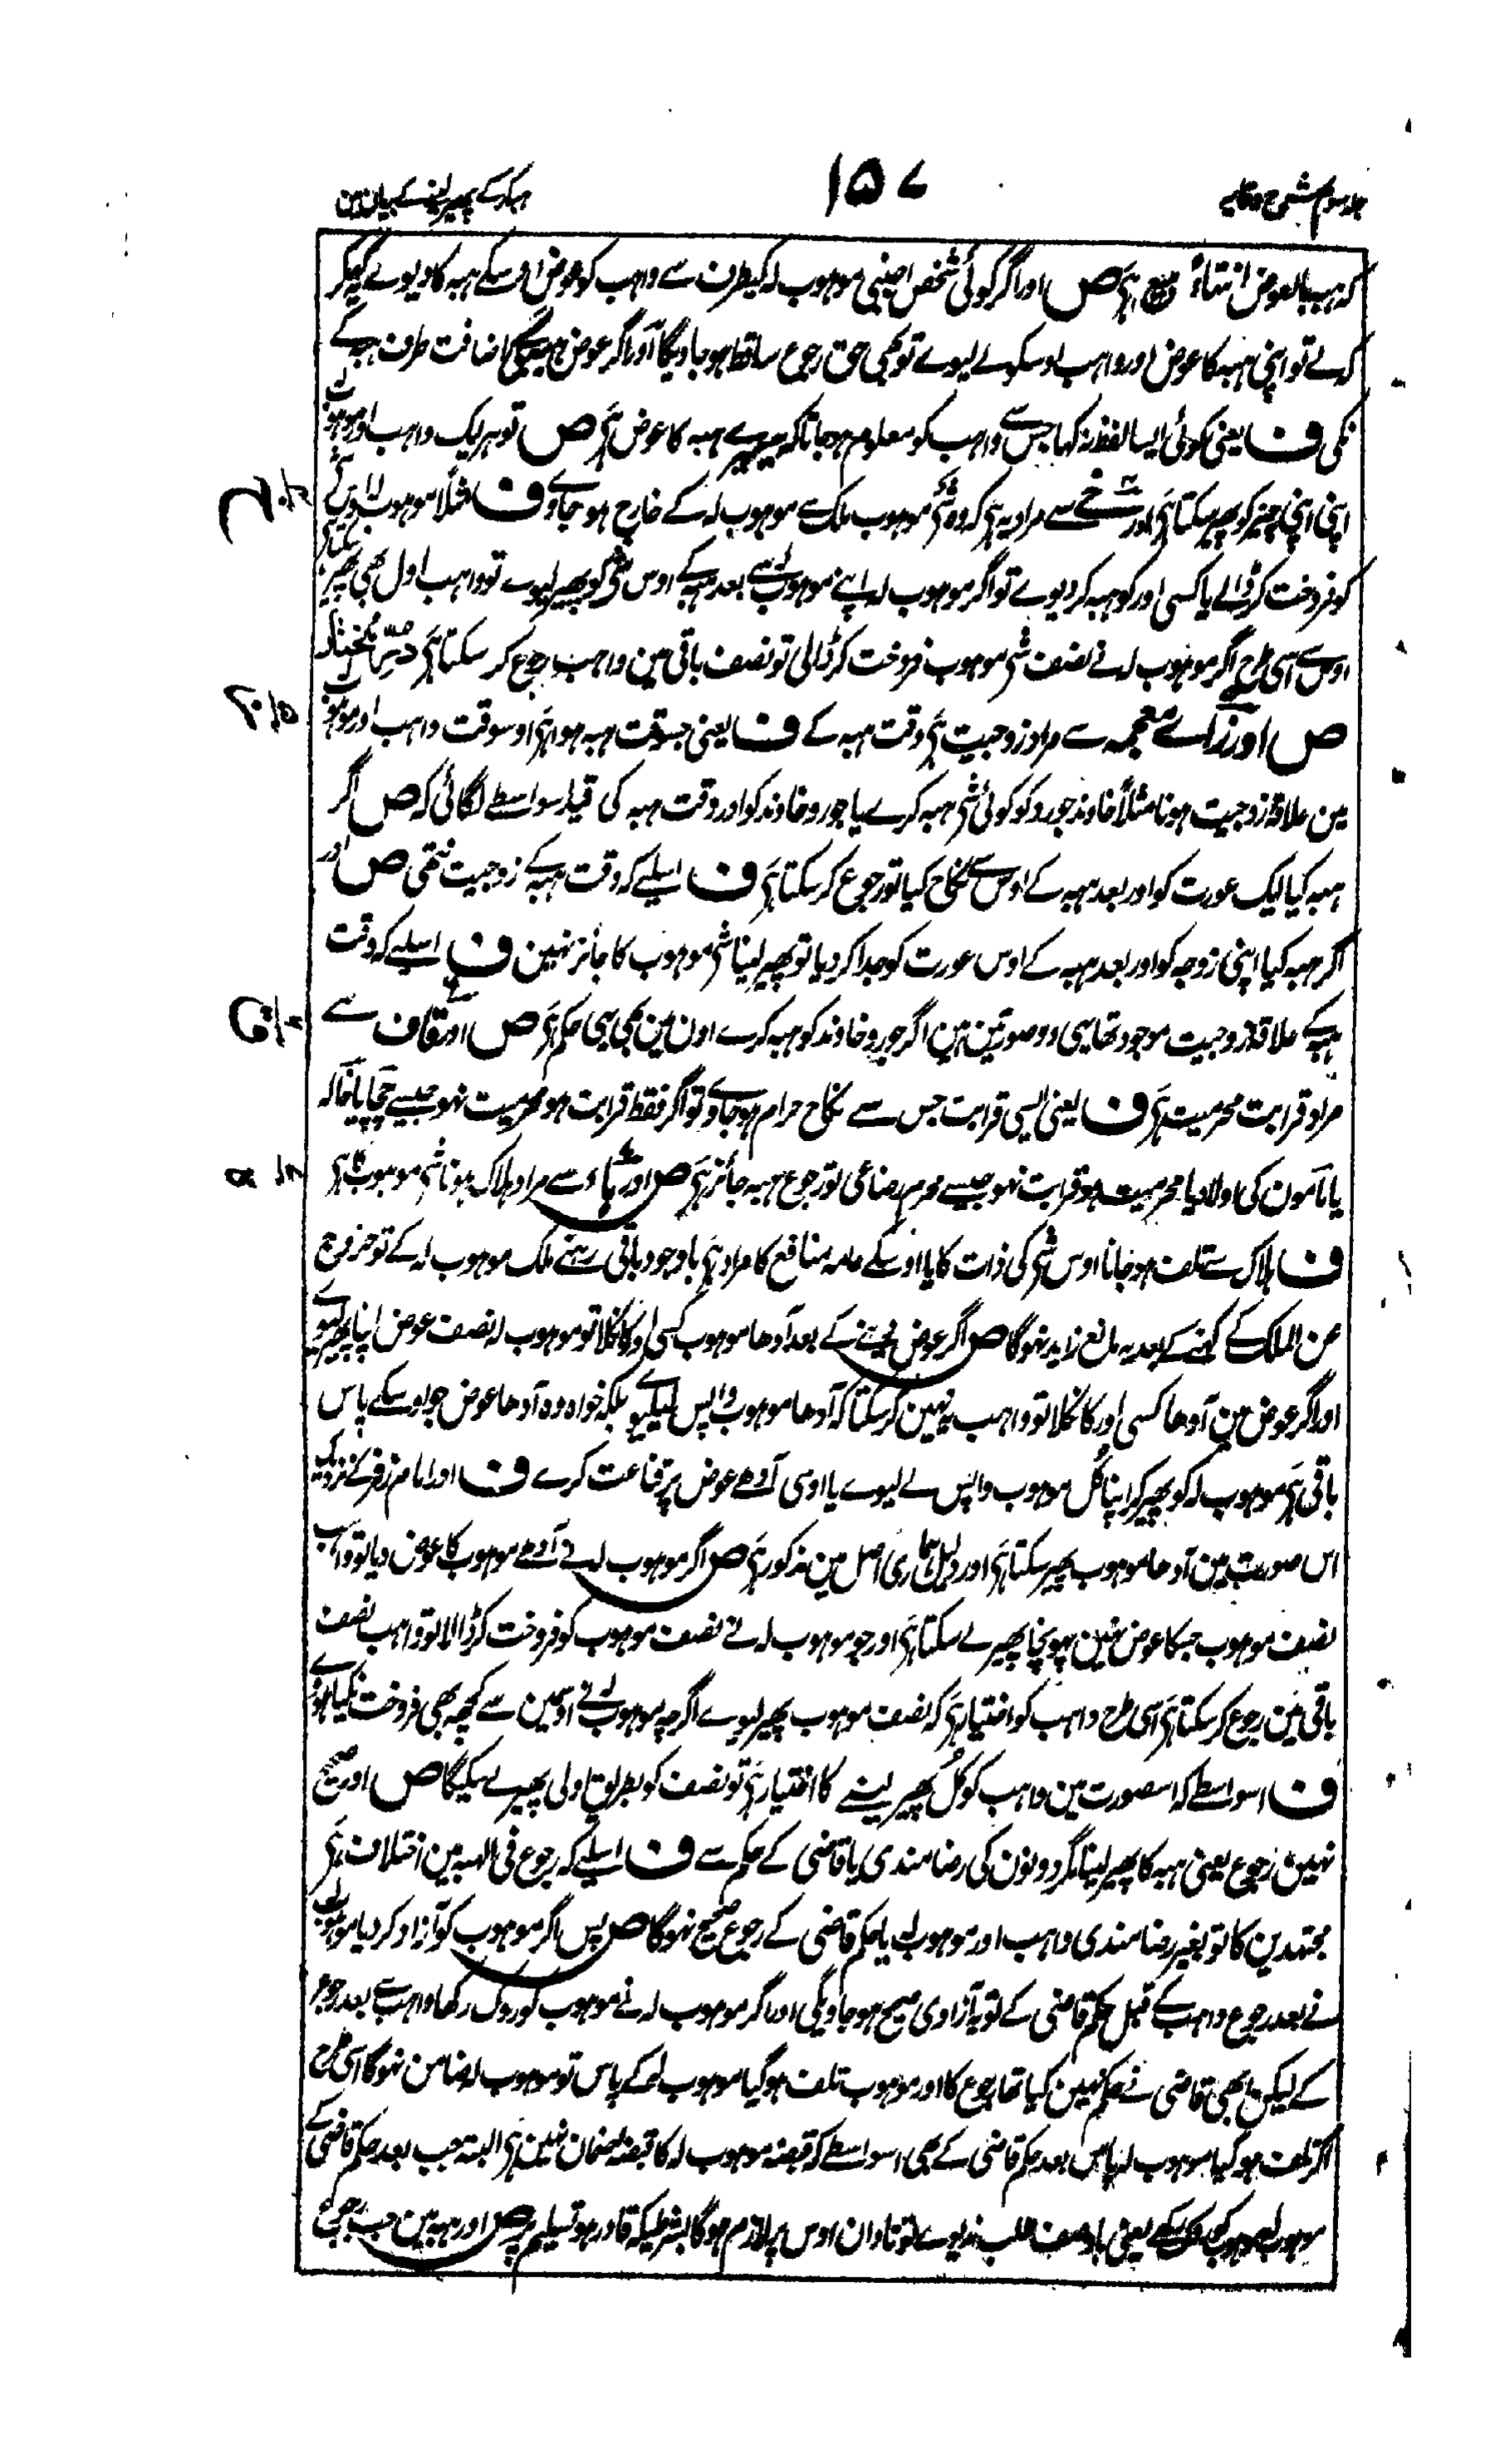 جلد سوم شرح وقایہ
۱۵۷
ہبہ کرکے پھیر لینے کے بیان مین
کہ ہبہ بالعوض انتہاءً بیع ہی ص اور اگر کوئی شخص اجنبی موہوب لہ کیطرف سے واہب کو عوض اوسکے ہبہ کا دیوے یہ کہکر
کہ لے تو اپنی ہبہ کا عوض اور واہب اوسکو لے لیوے تو بھی حق رجوع ساقط ہو جاویگا اور اگر عوض مین اضافت طرف ہبہ کے
نکی ف یعنی کوئی ایسا لفظ نہ کہا جس سے واہب کو معلوم ہو جاتا کہ میرے ہبہ کا عوض ہی ص تو ہر ایک واہب اور موہوب لہ
اپنی اپنی چیز کو پھیر سکتا ہی اور خ سے مراد یہ ہی کہ وہ شی موہوب ملک سے موہوب لہ کے خارج ہو جاوے ف مثلاً موہوب لہ اوس شی
کو فروخت کر ڈالے یا کسی اور کو ہبہ کر دیوے تو اگر موہوب لہ اپنے موہوب لہ سے بعد ہبہ کے اوس شی کو پھیر لیوے تو واہب اول بھی پھیر سکتا ہی
اوسے اسی طرح اگر موہوب لہ نے نصف شی موہوب فروخت کر ڈالی تو نصف باقی مین واہب رجوع کر سکتا ہی درمختار
ص اور زاے معجمہ سے مراد زوجیت ہی وقت ہبہ کے ف یعنی جسوقت ہبہ ہوا ہی اوسوقت واہب اور موہوب لہ
مین علاقہ زوجیت ہونا مثلاً خاوند جورو کو کوئی شی ہبہ کرے یا جورو خاوند کو اور وقت ہبہ کی قید اسواسطے لگائی کہ ص اگر
ہبہ کیا ایک عورت کو اور بعد ہبہ کے اوس سے نکاح کیا تو رجوع کر سکتا ہی ف اسلیے کہ وقت ہبہ کے زوجیت نتھی ص اور
اگر ہبہ کیا اپنی زوجہ کو اور بعد ہبہ کے اوس عورت کو جدا کر دیا تو پھیر لینا شی موہوب کا جائز نہین ف اسلیے کہ وقت
ہبہ کے علاقہ زوجیت موجود تھا یہی دو صورتین ہین اگر جورو خاوند کو ہبہ کرے اون مین بھی یہی حکم ہی ص اور قاف سے
مراد قرابت محرمیت ہی ف یعنی ایسی قرابت جس سے نکاح حرام ہو جاوے تو اگر فقط قرابت ہو محرمیت نہو جیسے چچا یا خالہ
یا مامون کی اولاد یا محرمیت ہو قرابت نہو جیسے محرم رضاعی تو رجوع ہبہ جائز ہی ص اور ہاء سے مراد ہلاک ہونا شی موہوب کا ہی
ف ہلاک سے تلف ہو جانا اوس شی کی ذات کا یا اوسکے عامہ منافع کا مراد ہی باوجود باقی رہنے ملک موہوب لہ کے تو خروج
عن الملک کے کہنے کے بعد یہ مانع زاید نہوگا ص اگر عوض دینے کے بعد آدھا موہوب کسی اور کا نکلا تو موہوب لہ نصف عوض اپنا پھیر لیوے
اور اگر عوض مین آدھا کسی اور کا نکلا تو واہب یہ نہین کر سکتا کہ آدھا موہوب واپس لیوے بلکہ خواہ وہ آدھا عوض جو اوسکے پاس
باقی ہی موہوب لہ کو پھیر کر اپنا کل موہوب واپس لے لیوے یا اوسی آدھے عوض پر قناعت کرے ف اور امام زفر کے نزدیک
اس صورت مین آدھا موہوب پھیر سکتا ہی اور دلیل ہماری اصل مین مذکور ہی ص اگر موہوب لہ نے آدھے موہوب کا عوض دیا تو واہب
نصف موہوب جسکا عوض نہین پہونچا پھیر لے سکتا ہی اور جو موہوب لہ نے نصف موہوب کو فروخت کر ڈالا تو واہب نصف
باقی مین رجوع کر سکتا ہی اسی طرح واہب کو اختیار ہی کہ نصف موہوب پھیر لیوے اگرچہ موہوب لہ نے اوسمین سے کچھ بھی فروخت نکیا ہووے
ف اسواسطے کہ اس صورت مین واہب کو کل پھیر لینے کا اختیار ہی تو نصف کو بطریق اولی پھیر لے سکیگا ص اور صحیح
نہین رجوع یعنی ہبہ کا پھیر لینا مگر دونون کی رضامندی یا قاضی کے حکم سے ف اسلیے کہ رجوع فی الہبہ مین اختلاف ہی
مجتہدین کا تو بغیر رضامندی واہب اور موہوب لہ یا حکم قاضی کے رجوع صحیح نہوگا ص پس اگر موہوب کو آزاد کر دیا موہوب لہ
نے بعد رجوع واہب کے قبل حکم قاضی کے تو یہ آزادی صحیح ہو جاویگی اور اگر موہوب لہ نے موہوب کو روک رکھا واہب سے بعد رجوع
کے لیکن ابھی قاضی نے حکم نہین کیا تھا رجوع کا اور موہوب تلف ہو گیا موہوب لہ کے پاس تو موہوب لہ ضامن نہوگا اسی طرح
اگر تلف ہو گیا موہوب لہ پاس بعد حکم قاضی کے بھی اسواسطے کہ قبضہ موہوب لہ کا قبضہ ضمان نہین ہی البتہ جب بعد حکم قاضی کے
موہوب لہ موہوب کو روک رکھے یعنی باوصف طلب ندیوے تو تاوان اوس پر لازم ہوگا بشرطیکہ قادر ہو تسلیم پر ص اور ہبہ مین جب رجوع